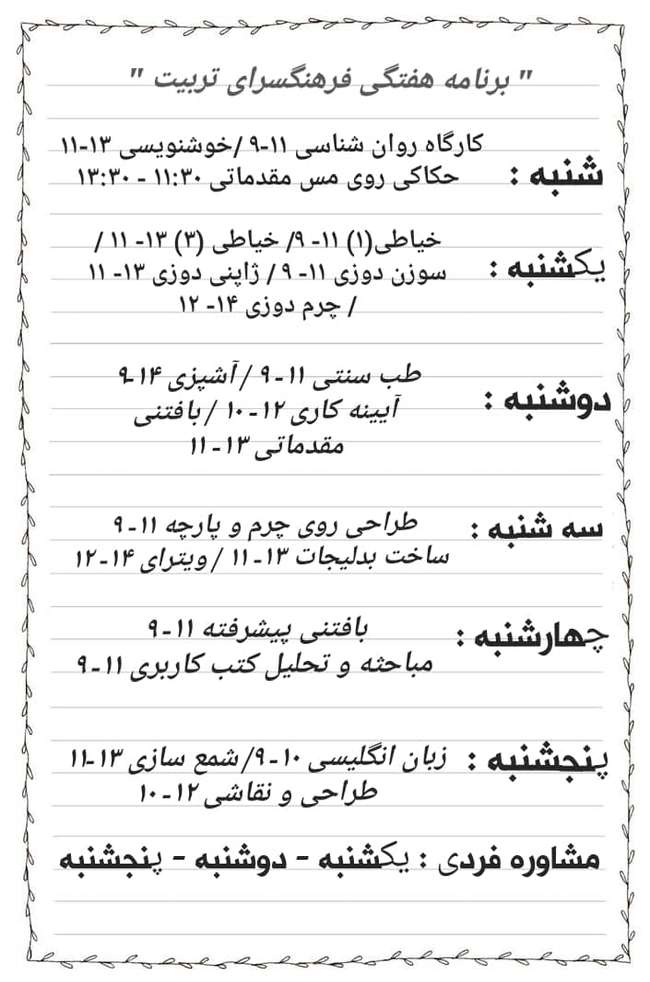 " برنامه هفتگی فرهنگسرای تربیت "
کارگاه روان شناسی ۱۱-۹ /خوشنویسی ۱۳-۱۱
شنبه :
حکاکی روی مس مقدماتی ۱۱:۳۰ - ۱۳:۳۰
خیاطی(۱) ۱۱- ۹/ خیاطی (۳) ۱۳- ۱۱ /
یکشنبه :
سوزن دوزی ۱۱- ۹ / ژاپنی دوزی ۱۳- ۱۱
/ چرم دوزی ۱۴- ۱۲
طب سنتی ۱۱-۹ / آشپزی ۱۴-۹
دوشنبه :
آیینه کاری ۱۲-۱۰ / بافتنی
مقدماتی ۱۳-۱۱
سه شنبه :
طراحی روی چرم و پارچه ۱۱-۹
ساخت بدلیجات ۱۳-۱۱ / ویترای ۱۴-۱۲
چهارشنبه :
بافتنی پیشرفته ۱۱-۹
مباحثه و تحلیل کتب کاربری ۱۱-۹
پنجشنبه :
زبان انگلیسی ۱۰-۹/ شمع سازی ۱۳-۱۱
طراحی و نقاشی ۱۲-۱۰
مشاوره فردی : یکشنبه - دوشنبه - پنجشنبه